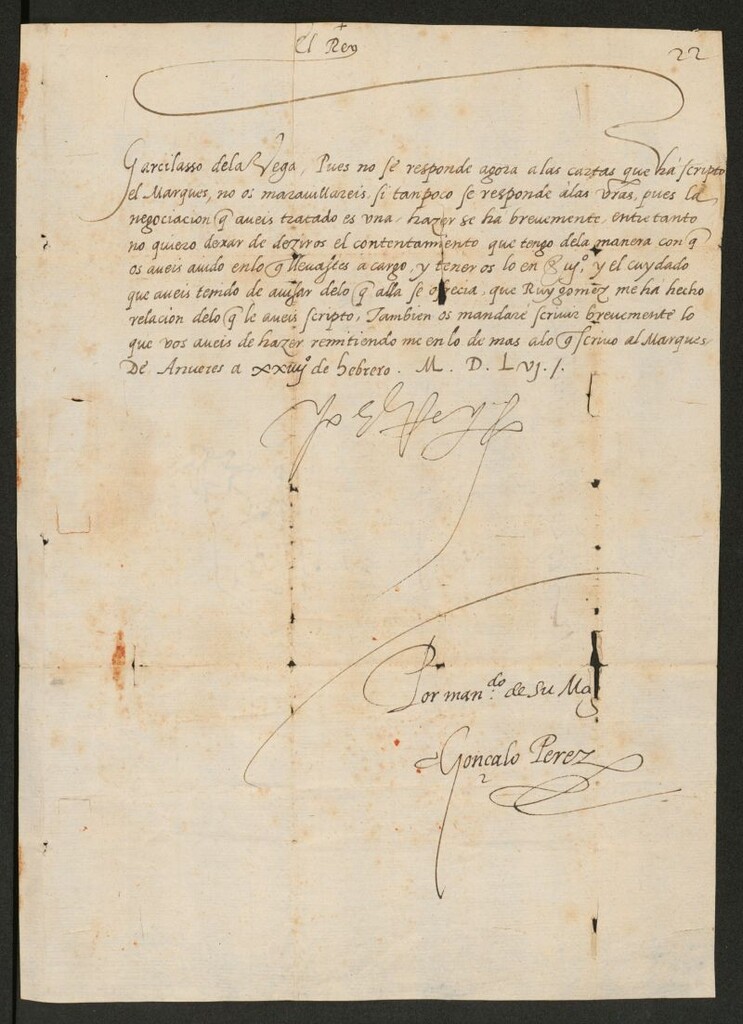 El Rey
22
Garcilasso dela Vega, Pues no se responde agora a las cartas que ha scripto
el Marques, no os marauillareis, si tanpoco se responde a las vras, pues la
negociacion q̃ aueis tractado es vna, hazer se ha breuemente, entretanto
no quiero dexar de deziros el contentamiento que tengo dela manera con q̃
os aueis auido enlo q̃ lleuastes a cargo, y teneros lo en ser.uiº, y el cuydado
que aueis tenido de auisar delo q̃ alla se ofrecia, que Ruy gomez me ha hecho
relacion delo q̃ le aueis scripto, Tambien os mandare scriuir breuemente lo
que vos aueis de hazer remitiendo me enlo de mas alo q̃ scriuo al Marques.
De Anueres a xxiiijº de hebrero. M. D. Lvj. /.
Yo el Rey
Por man.do de su Mag
Gonçalo Perez